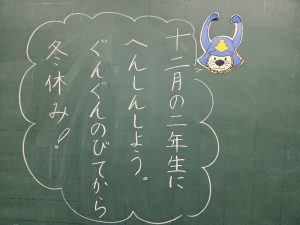 十二月の二年生に
へんしんしよう。
ぐんぐんのびてから
冬休み！